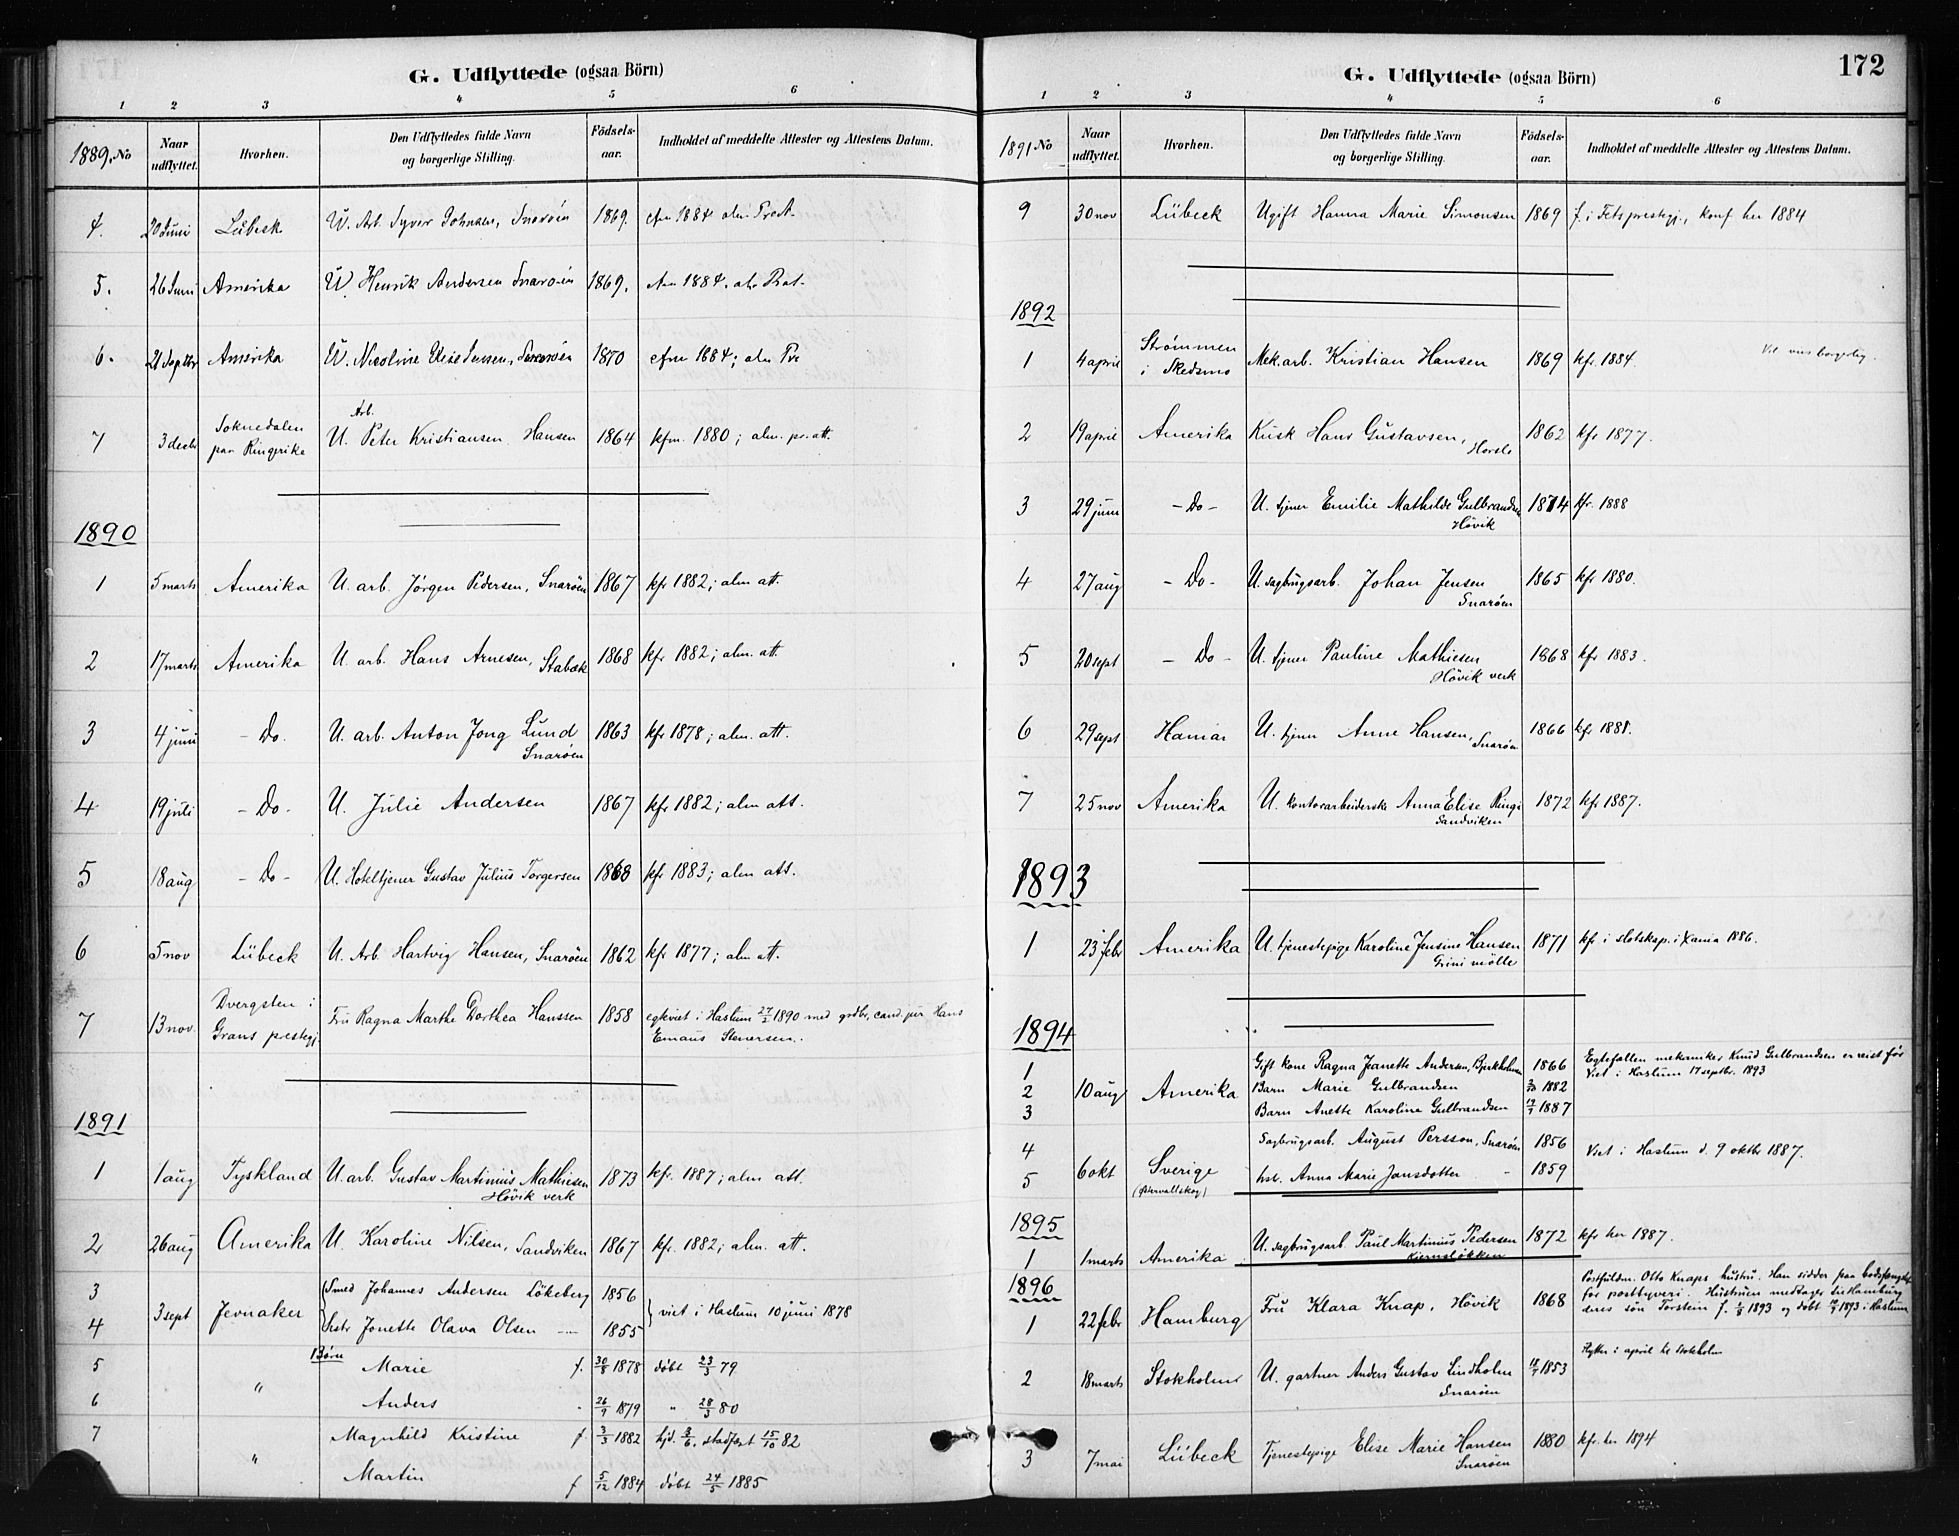 G. Udflyttede (ogsaa Börn)
1 2 3 4 5 6
1889. No
Naar udflyttet.
Hvorhen.
Den Udflyttedes fulde Navn og borgerlige Stilling.
Födsels-aar.
Indholdet af meddelte Attester og Attestens Datum.
4. 20 Juni Lübeck U. Arb. Syver Johnsen, Snaröen 1869.
5. 26 Juni Amerika U. Henrik Andersen Snaröen 1869.
6. Amerika U. Nicoline Elise Jensen, Snaröen 1870
Arb.
7 3 decbr Soknedalen paa Ringerike U. Peter Kristiansen Hansen 1864 kfm. 1880; alm. pr. att.
1890
1 5 marts Amerika U. arb. Jørgen Pedersen, Snaröen 1867 kfr 1882; alm att.
2 17 marts Amerika U. arb. Hans Arnesen, Stabæk 1868 kfr 1882; alm. att.
3 4 juni - Do. U. arb. Anton Jong Lund 1863 kfr 1878; alm. att.
Snaröen
4 19 juli - Do - U. Julie Andersen 1867 kfr 1882; alm att.
5 18 aug - Do - U. Hoteltjener Gustav Julius Torgersen 1868 kfr 1883; alm att.
6 5 nov Lübeck U. Arb. Hartvig Hansen, Snaröen 1862 kfr 1877; alm att.
7 13 nov. Dvergsten i Grans prestegj. Fru Ragna Marthe Dorthea Hanssen 1858 egtviet i Haslum 27/2 1890 med grdbr, cand. jur Hans
Emaus Stenersen.
1891
1 1 aug Tyskland U. arb. Gustav Martinius Mathiesen 1873 kfr. 1887; alm att.
Hövik verk
2 26 aug Amerika U. Karoline Nilsen, Sandviken 1867 kfr. 1882; alm. att.
3 Smed Johannes Andersen Lökeberg 1856
3 sept Jevnaker viet i Haslum 10 juni 1878
4 hstr Jonette Olava Olsen — 1855
Børn
5 Marie f. 30/8 1878 döbt 23/3 79
6 " Anders - 26/9 1879 " 28/3 80
7 Magnhild Kristine f 3/3 1882 hjd. 3/6, stadfæst 15/10 82
" Martin f 5/12 1884 döbt 24/5 1885
G. Udflyttede (ogsaa Börn)
172
1 2 3 4 5 6
1891 No
Naar udflyttet.
Hvorhen.
Den Udflyttedes fulde Navn og borgerlige Stilling.
Födsels-aar.
Indholdet af meddelte Attester og Attestens Datum.
9 30 nov Lübeck Ugift Hanna Marie Simonsen 1869 f. i Fets prestegj., konf her 1884
1892
1 4 april Strømmen i Skedsmo Mek. arb. Kristian Hansen 1869 kfr. 1884.
2 19 april Amerika Kusk Hans Gustavsen, 1862 kfr 1877.
3 29 juni - Do - U. tjener Emilie Mathilde Gulbrandsen 1874 kfr. 1888
Hövik
4 27 aug - Do - U. sagbrugsarb. Johan Jensen 1865 kfr 1880.
Snaröen
5 20 sept - Do - U. tjener Pauline Mathiesen 1868 kfr 1883.
Hövik verk
6 29 sept Hamar U. tjener Anne Hansen, Snaröen 1866 kfr 1881.
7 25 nov Amerika U. kontorarbeiderske Anna Elise Ringi 1872 kfr 1887.
Sandviken
1893
1 23 febr Amerika U. tjenestepige Karoline Jensine Hansen 1871 kfr i slotskap. i Xania 1886.
Grini mölle
1894
1 Gift kone Ragna Jeanette Andersen, Bjerkholmen 1866 Egtefællen mekaniker Knud Gulbrandsen er reist før
2 10 aug Amerika Barn Marie Gulbrandsen 1882 Viet i Haslum 17 septbr. 1893
3 Barn Anette Karoline Gulbrandsen 1887
4 Sagbrugsarb. August Persson, Snaröen 1856
6 okt Sverige Viet i Haslum d. 9 oktbr 1887.
5 hstr. Anna Marie Jansdotter - 1859
1895
1 1 marts Amerika U. sagbrugsarb. Paul Martinius Pedersen 1872 kfr her 1887.
1896
1 22 febr Hamburg Fru Klara Knap, Hövik 1868 Postfuldm. Otto Knaps hustru. Han sidder paa bodsfængslet
for posttyveri. Hustruen medtager til Hamburg
sens sön Torstein f. 1893 og döbt 1893 i Haslum
Flytter i april til Stokholm
2 18 marts Stokholm U. gartner Anders Gustav Lindholm 1853
Snaröen
3 7 mai Lübeck Tjenestepige Elise Marie Hansen 1880 kfr. her 1894
Snaröen